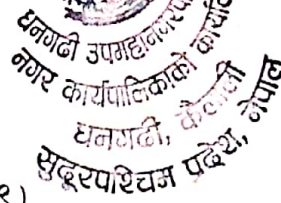 धनगढी उपमहानगरपा
नगर कार्यपालिकाको कार्याल
धनगढी, कैलाली
सुदूरपश्चिम प्रदेश, नेपाल
९)